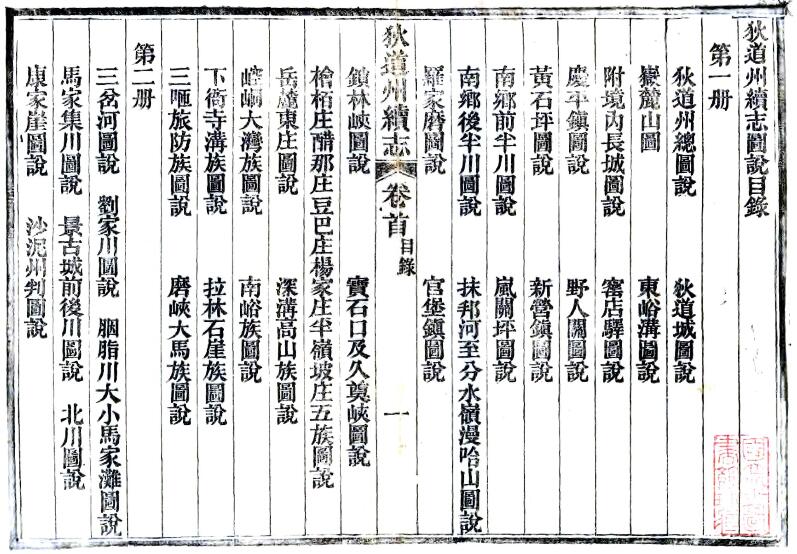 狄道州續志圖說目錄
第一册
狄道州總圖說　狄道城圖說
嶽麓山圖　東峪溝圖說
附境內長城圖說　窰店驛圖說
慶平鎮圖說　野人關圖說
黃石坪圖說　新營鎮圖說
南鄉前半川圖說　嵐關坪圖說
南鄉後半川圖說　抹邦河至分水嶺漫哈山圖說
羅家磨圖說　官堡鎮圖說
狄道州續志　卷首　目錄　一
鎖林峽圖說　寶石口及久奠峽圖說
檜柏庄醋那庄豆巴庄楊家庄半嶺坡庄五族圖說
岳麓東庄圖說　深溝高山族圖說
崆峒大灣族圖說　南峪族圖說
下衙寺溝族圖說　拉林石崖族圖說
三咂旅防族圖說　磨峽大馬族圖說
第二册
三岔河圖說　劉家川圖說　胭脂川大小馬家灘圖說
馬家集川圖說　景古城前後川圖說　北川圖說
康家崖圖說　沙泥州判圖說